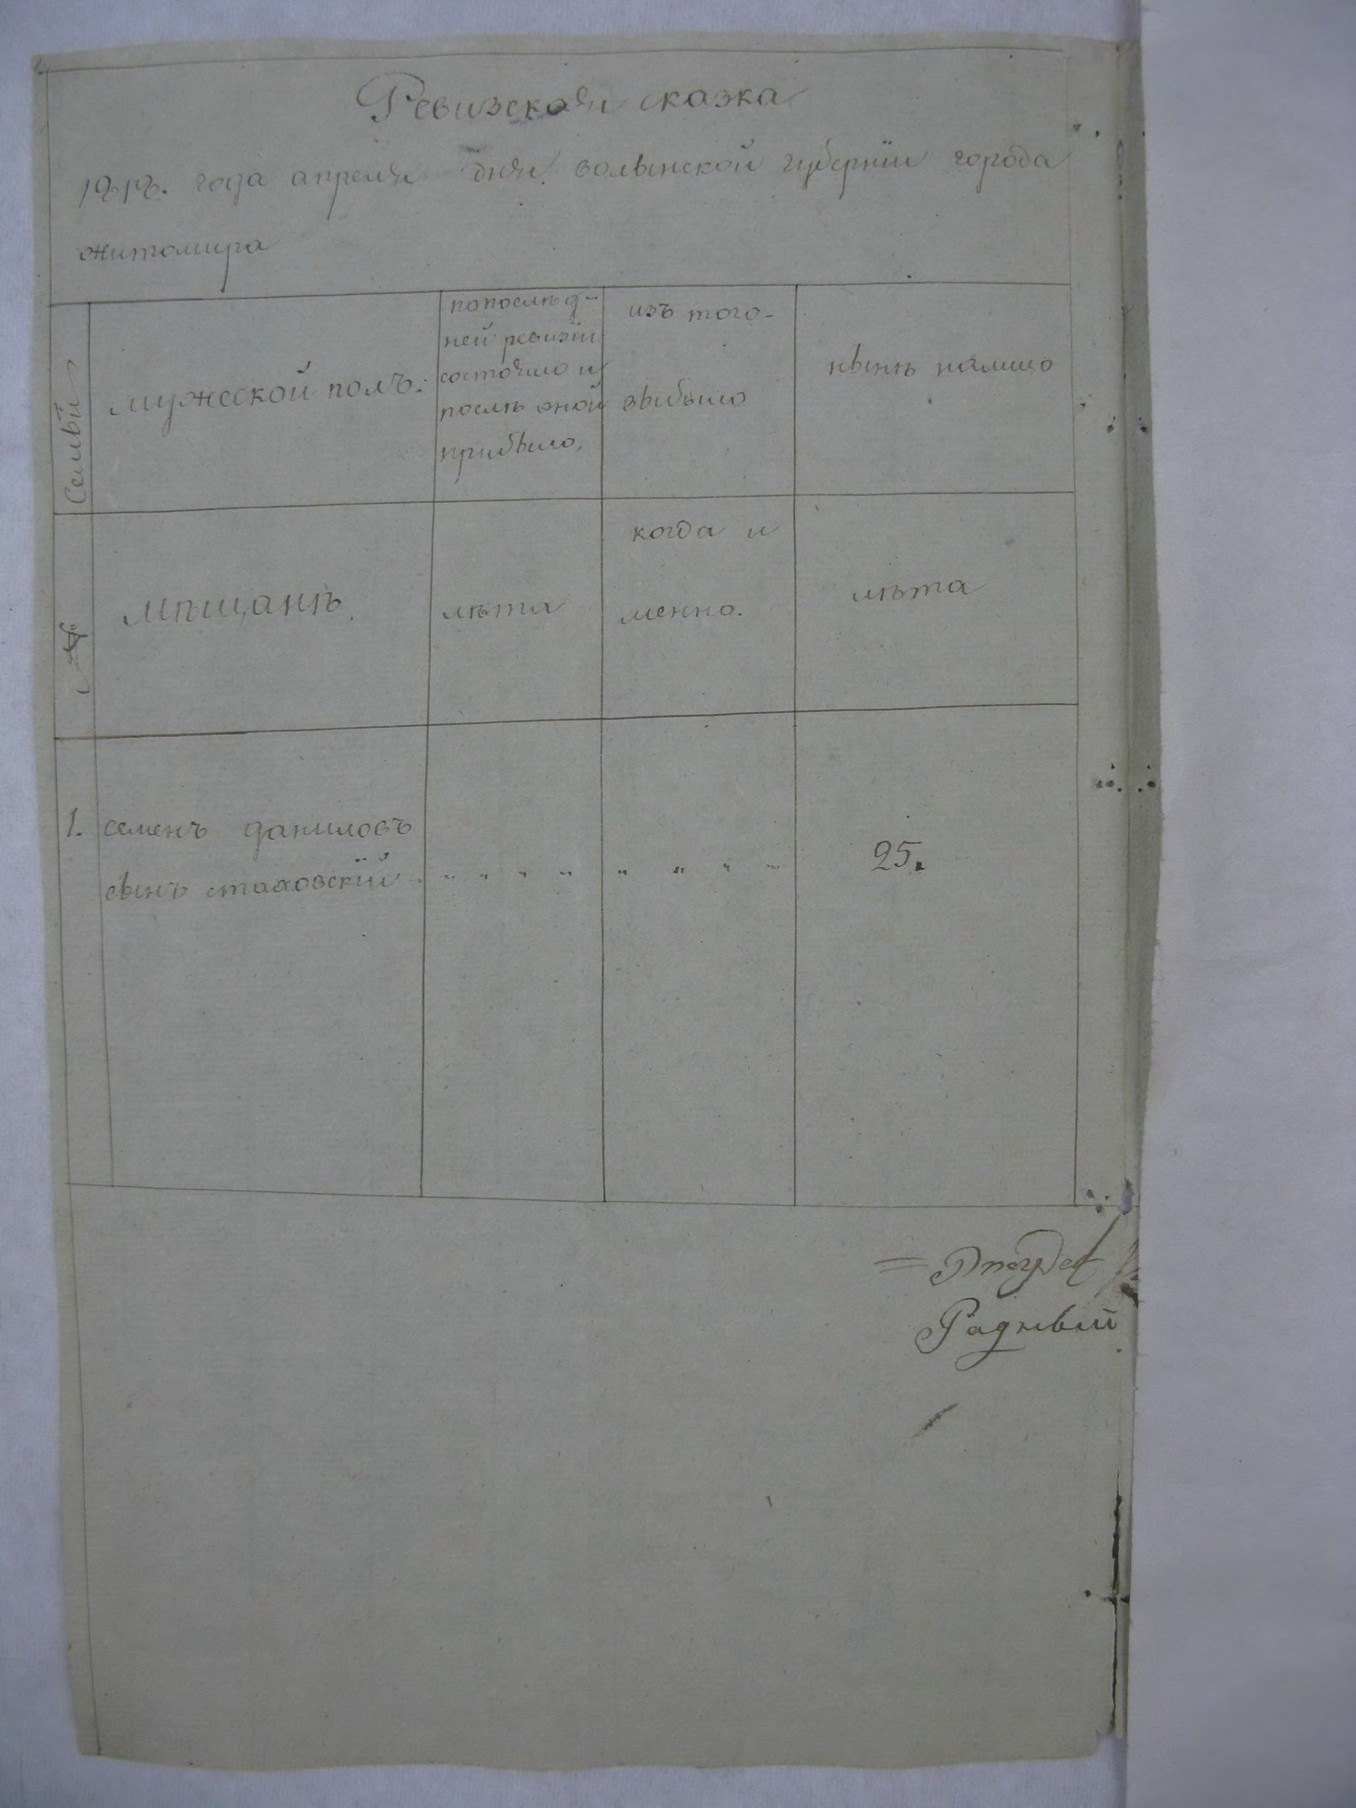 Ревизская сказка
1818. года апреля дня волынской губернїи города
житомира
Семьи
мужеской полъ.
попослѣд-
ней ревизїи
состояло и
послѣ оной
прибыло.
изъ того-
выбыло
нынѣ налицо
№
мѣщанѣ.
лѣта
когда и
менно.
лѣта
1. семенъ даниловъ
сынъ стаховскїй
25.
Радный